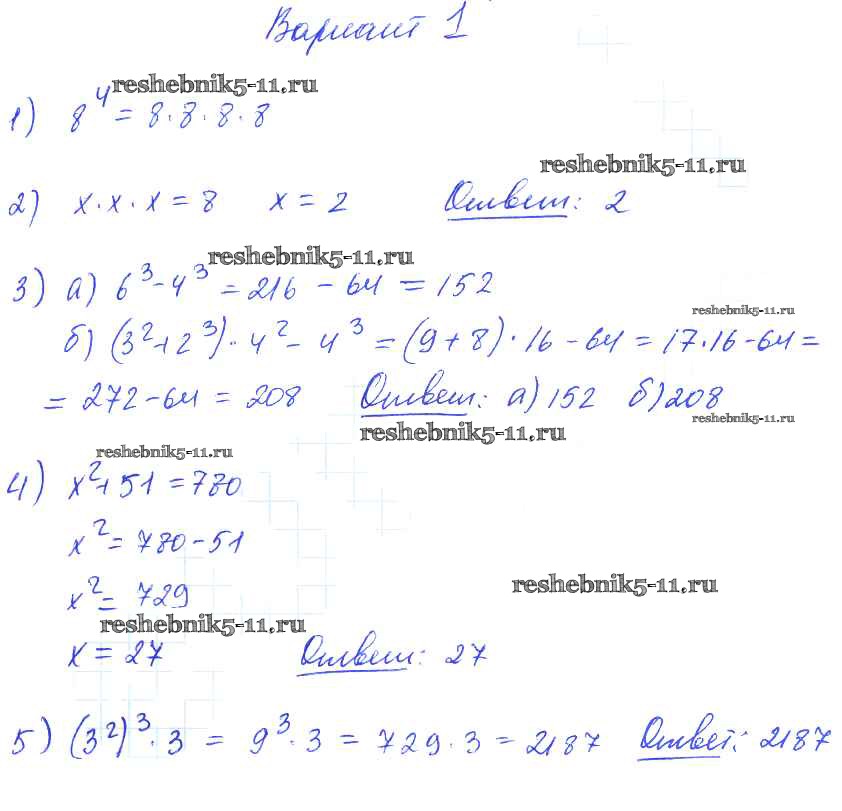 Вариант 1
reshebnik5-11.ru
1) 8⁴ = 8·8·8·8
reshebnik5-11.ru
2) x·x·x = 8 x = 2 Ответ: 2
reshebnik5-11.ru
3) а) 6³-4³ = 216 - 64 = 152
reshebnik5-11.ru
б) (3²+2³)·4² - 4³ = (9+8)·16 - 64 = 17·16-64 =
= 272-64 = 208 Ответ: а) 152 б) 208
reshebnik5-11.ru
reshebnik5-11.ru
reshebnik5-11.ru
4) x²+51 = 780
x² = 780-51
reshebnik5-11.ru
x² = 729
reshebnik5-11.ru
x = 27 Ответ: 27
5) (3²)³·3 = 9³·3 = 729·3 = 2187 Ответ: 2187